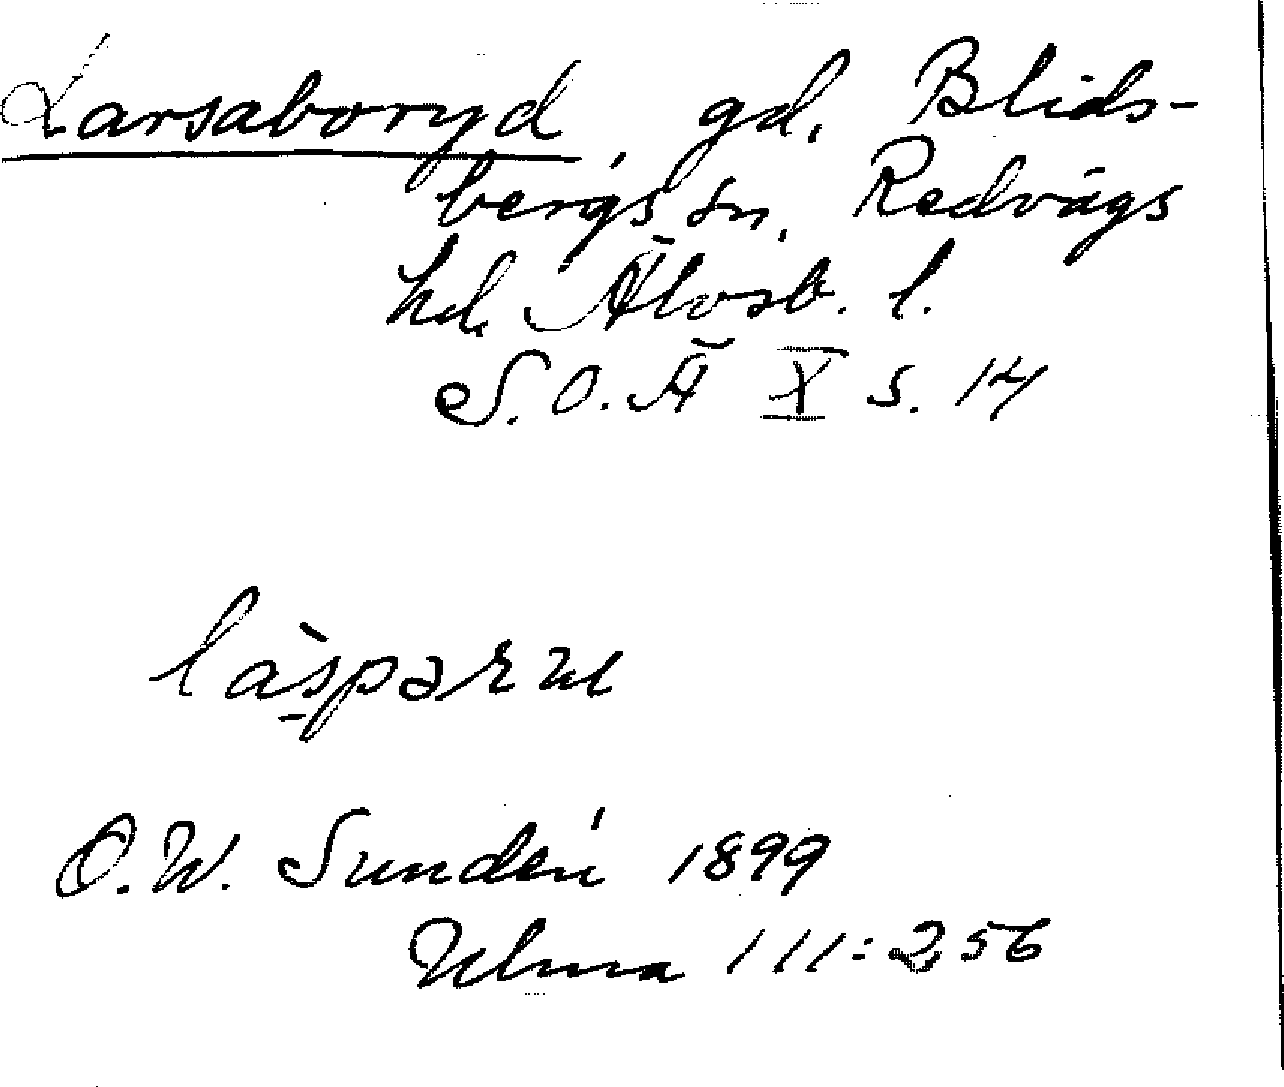 Larsaboryd, gd, Blids-
bergs sn, Redvägs
hd, Älvsb. l.
S.O.Ä X s. 14
O.W. Sundén 1899
Ulma 111:256